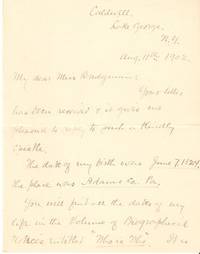 Caldwell,
Lake George,
N.Y.
Aug. 11th, 1902.
My dear Miss Bridgman:
Your letter
has been received & it gives me
pleasure to reply to such a friendly
The date of my birth was June 7, 1829,
the place was Adams Co. Pa.
You will find all the dates of my
life in the volume of Biographical
notices entitled "Who's Who". It is